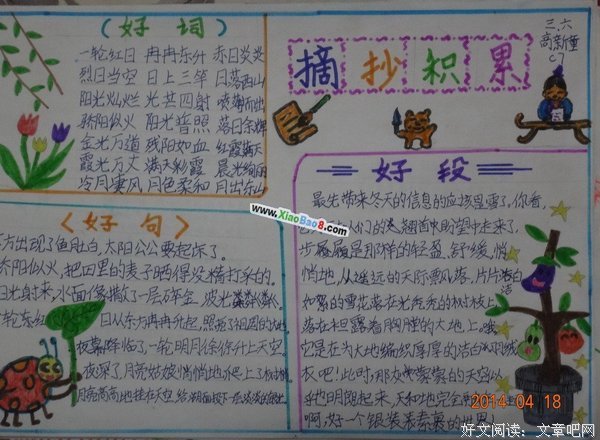 (好词)
一轮红日 冉冉东升 赤日炎炎
烈日当空 日上三竿 日落西山
阳光灿烂 光芒四射 喷薄而出
骄阳似火 阳光普照 落日余辉
金光万道 残阳如血 红霞满天
霞光万丈 满天彩霞 晨光绚丽
冷月凄风 月色柔和 月出东山
摘抄积累
三、六
高新童
C7
〈好句〉
方出现了鱼肚白,太阳公公要起床了。
乔阳似火,把四里的麦子晒得没精打采的。
日光射来,水面像撒了一层碎金,波光粼粼
一轮东红 日从东方冉冉升起,照
夜幕降临了,一轮明月徐徐升上天空。
夜深了,月亮姑娘悄悄地爬上了树梢
月亮高高地挂在天空
好段
最先带来冬天的信息的应该是雪了,你看,
它 人们的 翘首盼望中走来了,
步履是那样的轻盈、舒缓,悄
悄地,从遥远的天际飘落,片片洁白
如絮的雪花落在光秃秃的树枝上
落在袒露着胸膛的大地上,哦
它是在为大地编织厚厚的洁白的绒
衣吧!此时,那灰雾雾的天空似
地明朗起来,天和地完全
啊,好一个银装素裹的世界!
www.XiaoBao8.com
2014-04-18
好文阅读:文章吧网